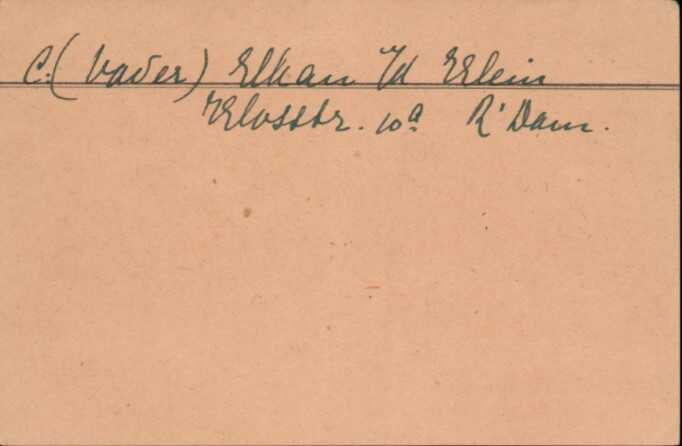 C. (vader) Elkan Vd Klein
Vlosstr. 10a R'Dam.